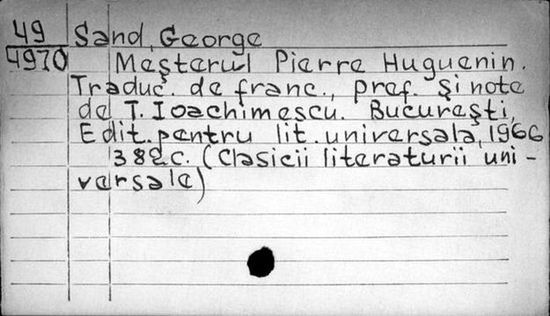 49 Sand, George
4970 Meşterul Pierre Huguenin.
Traduc. de franc., pref. şi note
de T. Ioachimescu. Bucureşti,
Edit. pentru lit. universala, 1966
382c. (Clasicii literaturii uni-
versale)